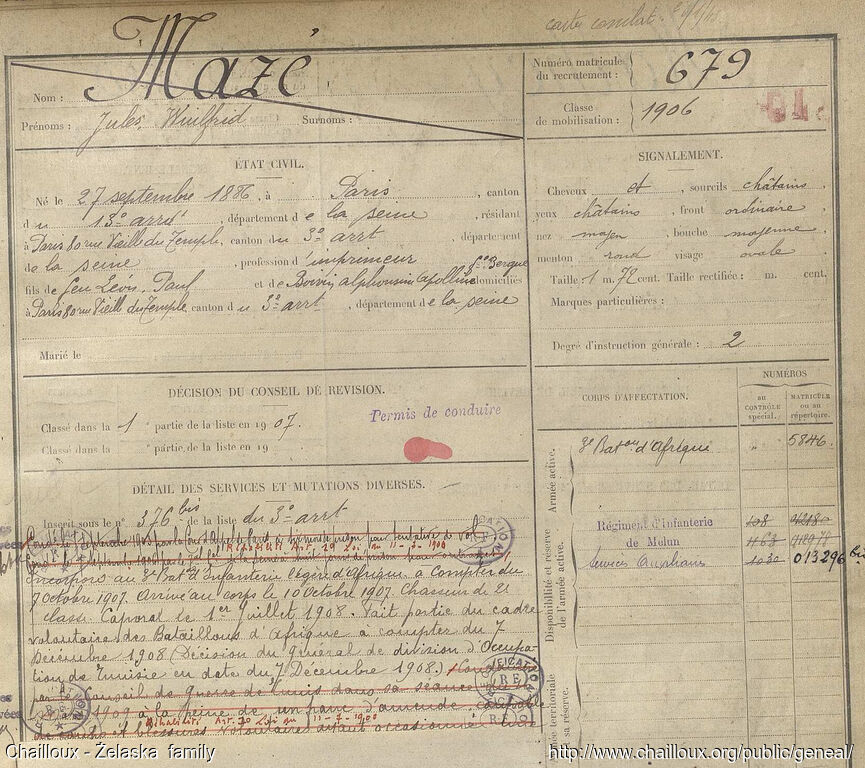 carte combat
Nom : Mazé
Prénoms : Jules, Wilfrid Surnoms :
Numéro matricule du recrutement : 679
Classe de mobilisation : 1906
ÉTAT CIVIL.
Né le 27 septembre 1886, à Paris, canton
du 13e arrt, département de la Seine, résidant
à Paris 80 rue Vieille du Temple, canton du 3e arrt, département
de la Seine, profession d'imprimeur
fils de feu Léon, Paul et de Boivin Alphonsine Apolline domiciliés
à Paris 80 rue Vieille du Temple, canton du 3e arrt, département de la Seine
Marié le
SIGNALEMENT.
Cheveux et, sourcils châtains,
yeux châtains, front ordinaire
nez moyen, bouche moyenne,
menton rond visage ovale
Taille 1 m. 72 cent. Taille rectifiée : m. cent.
Marques particulières :
Degré d'instruction générale : 2
DÉCISION DU CONSEIL DE REVISION.
Classé dans la 1 partie de la liste en 1907.
Classé dans la partie de la liste en 19
Permis de conduire
DÉTAIL DES SERVICES ET MUTATIONS DIVERSES.
Inscrit sous le n° 376 bis de la liste du 3e arrt
Réhabilité Art. 29 Loi du
Incorporé au 3e Bat. d'Infanterie légère d'Afrique à compter du
7 octobre 1907. Arrivé au corps le 10 octobre 1907. Chasseur de 2e
classe Caporal le 1er juillet 1908. Fait partie du cadre
volontaire des Bataillons d'Afrique à compter du 7
Décembre 1908 (Décision du Général de division d'Occupa-
tion de Tunisie en date du 7 Décembre 1908.)
par le Conseil de guerre de Tunis dans sa séance
1909 à la peine de un franc d'amende,
Réhabilité Art.
de coups et blessures volontaires ayant occasionné
CORPS D'AFFECTATION.
NUMÉROS
au CONTRÔLE spécial.
MATRICULE ou au répertoire.
Armée active.
3e Baton d'Afrique " 5846.
Disponibilité et réserve de l'armée active.
Régiment d'Infanterie 108
de Melun 1163
Services Auxiliaires 1030 013296
Armée territoriale
sa réserve.
Chailloux - Żelaska family
http://www.chailloux.org/public/geneal/